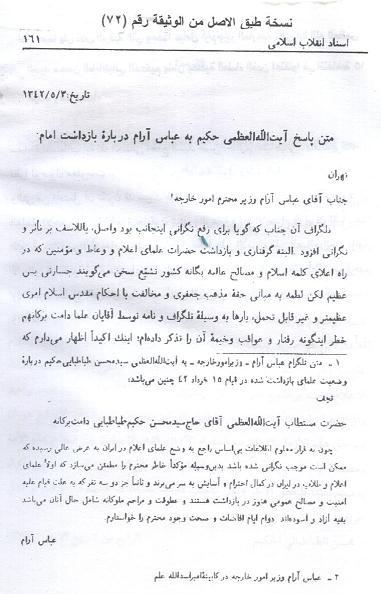 نسخة طبق الاصل من الوثيقة رقم (٧٢)
اسناد انقلاب اسلامی
١٦١
تاریخ: ١٣٤٢/٥/٣
متن پاسخ آیت‌الله‌العظمی حکیم به عباس آرام دربارهٔ بازداشت امام
تهران
جناب آقای عباس آرام وزیر محترم امور خارجه!
تلگراف آن جناب که گویا برای رفع نگرانی اینجانب بود واصل، یاللاسف بر تأثر و
نگرانی افزود. البته گرفتاری و بازداشت حضرات علمای اعلام و وعاظ و مؤمنین که در
راه اعلای کلمه اسلام و مصالح عامه یگانه کشور تشیّع سخن می‌گویند جسارتی بس
عظیم لکن لطمه به مبانی حقهٔ مذهب جعفری و مخالفت با احکام مقدس اسلام امری
عظیمتر و غیر قابل تحمل، بارها به وسیلهٔ تلگراف و نامه توسط آقایان علما دامت برکاتهم
خطر اینگونه رفتار و عواقب وخیمهٔ آن را تذکر داده‌ام؛ اینك اکیداً اظهار می‌دارم که
١ - متن تلگرام عباس آرام - وزیرامورخارجه - به آیت‌الله‌العظمی سیدمحسن طباطبایی‌حکیم دربارهٔ
وضعیت علمای بازداشت شده در قیام ١٥ خرداد ٤٢ چنین می‌باشد:
نجف
حضرت مستطاب آیت‌الله‌العظمی آقای حاج‌سیدمحسن حکیم‌طباطبایی دامت‌برکاته
چون به قرار معلوم اطلاعات بی‌اساس راجع به وضع علمای اعلام در ایران به عرض عالی رسیده که
ممکن است موجب نگرانی شده باشد بدین‌وسیله مؤکداً خاطر محترم را مطمئن می‌سازد که اولاً علمای
اعلام و طلاب در ایران در کمال احترام و آسایش به سر می‌برند و ثانیاً جز دو سه نفر که به علت قیام علیه
امنیت و مصالح عمومی هنوز در بازداشت هستند و عطوفت و مراحم ملوکانه شامل حال آنان می‌باشد
بقیه آزاد و آسوده‌اند. دوام ایام افاضات و صحت وجود محترم را خواستارم.
عباس آرام
٢ - عباس آرام وزیر امور خارجه در کابینهٔ امیراسدالله علم